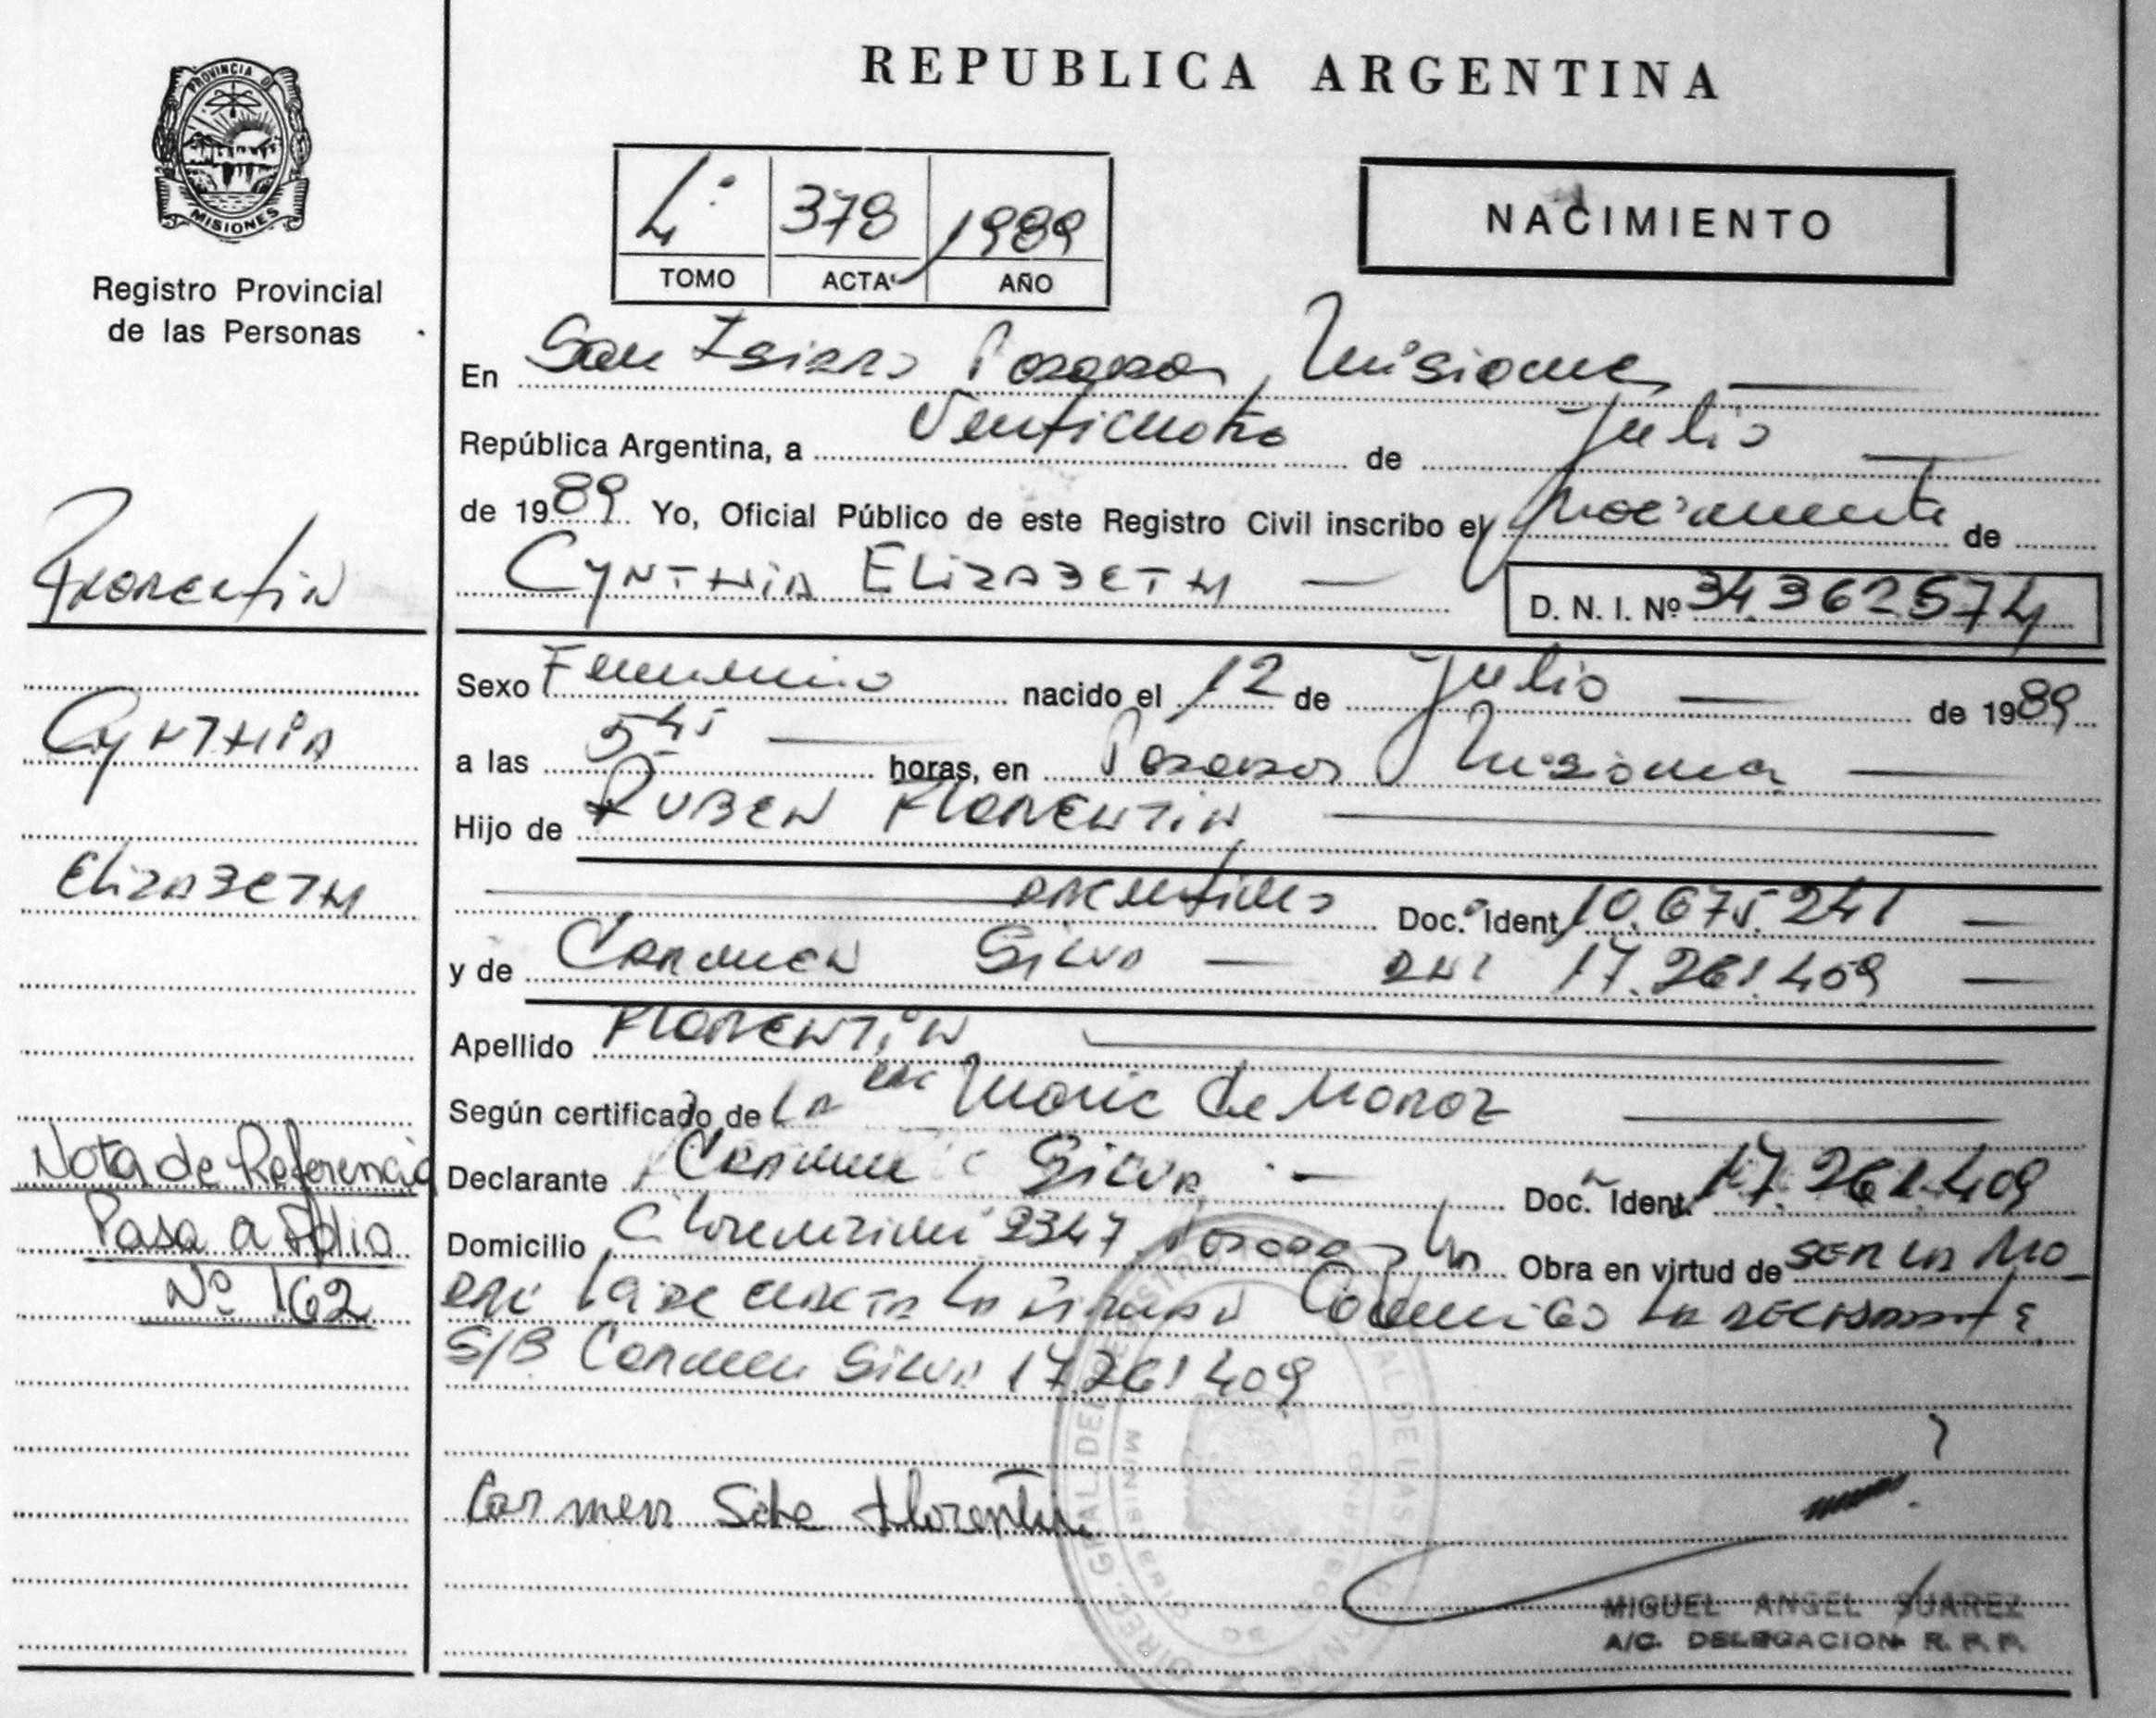 PROVINCIA DE
MISIONES
Registro Provincial
de las Personas
Florentin
Cynthia
Elizabeth
Nota de Referencia
Pasa a Folio
Nº 162
REPUBLICA ARGENTINA
4º 378 1989
TOMO ACTA AÑO
NACIMIENTO
En San Isidro Posadas, Misiones
República Argentina, a Venticuatro de Julio
de 1989 Yo, Oficial Público de este Registro Civil inscribo el Nacimiento de
CYNTHIA ELIZABETH D. N. I. Nº 34.362574
Sexo Femenino nacido el 12 de Julio de 1989
a las 5 45 horas, en Posadas Misiones
Hijo de RUBEN FLORENTIN
argentino Doc. Ident. 10.675.241
y de Carmen Silva DNI 17.261.409
Apellido FLORENTIN
Según certificado de La Marie de Moroz
Declarante Carmen Silva Doc. Ident. 17.261.409
Domicilio 2347 Posadas Mn Obra en virtud de SER LA MA
DRE Leida Acta La firma Conmigo LA DECLARANTE
S/B Carmen Silva 17.261409
Carmen S de Florentin
MIGUEL ANGEL SUAREZ
A/C. DELEGACION R. P. P.